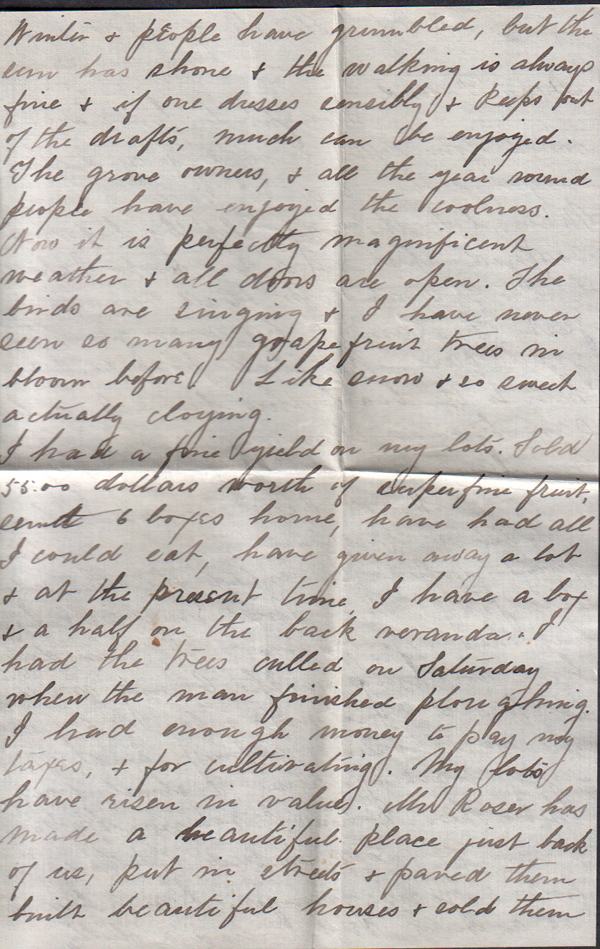 Winter & people have grumbled, but the
sun has shone & the walking is always
fine & if one dresses sensibly & keeps out
of the drafts, much can be enjoyed.
The grove owners, & all the year round
people have enjoyed the coolness.
Now it is perfectly magnificent
weather & all doors are open. The
birds are singing & I have never
seen so many grapefruit trees in
bloom before. Like snow & so sweet
actually cloying.
I had a fine yield on my lots. Sold
55.00 dollars worth of superfine fruit,
sent 6 boxes home, have had all
I could eat, have given away a lot
& at the present time, I have a box
& a half on the back veranda. I
had the trees culled on Saturday
when the man finished ploughing.
I had enough money to pay my
taxes, & for cultivating. My lots
have risen in value. Mr Roser has
made a beautiful place just back
of us, put in streets & paved them
built beautiful houses & sold them